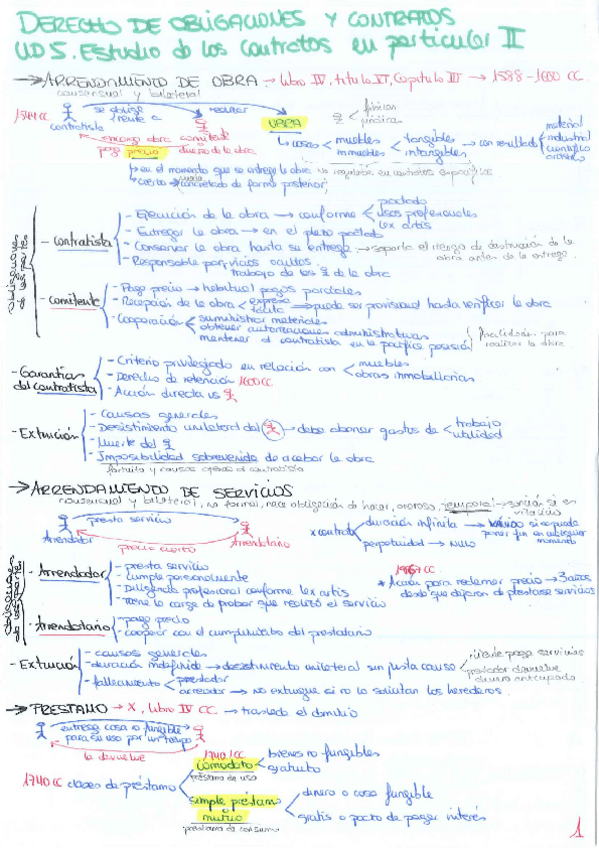 DERECHO DE OBLIGACIONES Y CONTRATOS
UD 5. Estudio de los Contratos en particular II
→ ARRENDAMIENTO DE OBRA → Libro IV, Título VI, Capítulo III → 1588 - 1600 CC
consensual y bilateral
1544 CC
se obliga frente a
realizar
OBRA
físicas
jurídicas
contratista
encarga obra
comitente
paga precio
dueño de la obra
cosas
muebles
inmuebles
tangibles
intangibles
con resultado
material
industrial
científico
artístico
en el momento que se entrega la obra
concretado de forma posterior
Obligaciones de las partes
- Contratista
- Ejecución de la obra → conforme
pactado
usos profesionales
lex artis
- Entregar la obra → en el plazo pactado
- Conservar la obra hasta su entrega → soporta el riesgo de destrucción de la obra antes de la entrega
- Responsable por vicios ocultos
trabajo de los de la obra
- Comitente
- Pago precio → habitual pagos parciales
- Recepción de la obra
expresa
tácita
puede ser provisional hasta verificar la obra
- Cooperación
suministrar materiales
obtener autorizaciones administrativas
mantener al contratista en la pacífica posesión
para realizar la obra
- Garantías del contratista
- Criterio privilegiado en relación con
muebles
obras inmobiliarias
- Derecho de retención 1600 CC
- Acción directa vs
- Extinción
- Causas generales
- Desistimiento unilateral del → debe abonar gastos de
trabajo
utilidad
- Muerte del
- Imposibilidad sobrevenida de acabar la obra
fortuita y causas ajenas al contratista
→ ARRENDAMIENTO DE SERVICIOS
consensual y bilateral, no formal, nace obligación de hacer, oneroso, temporal
presta servicio
Arrendador
precio cierto
Arrendatario
x contrato
duración infinita → VÁLIDO si se puede poner fin en cualquier momento
perpetuidad → NULO
Obligaciones de las partes
- Arrendador
- presta servicio
- cumple personalmente
- Diligencia profesional conforme lex artis
- tiene la carga de probar que realizó el servicio
1967 CC
* Acción para reclamar precio → 3 años desde que dejaron de prestarse servicios
- Arrendatario
- pago precio
- cooperar con el cumplimiento del prestatario
- Extinción
- causas generales
- duración indefinida → desistimiento unilateral sin justa causa
cliente paga servicios
prestador devuelve dinero anticipado
- fallecimiento
prestador
acreedor → no extingue si no lo solicitan los herederos
→ PRESTAMO → X, Libro IV CC. → traslada el dominio
entrega cosa no fungible para su uso por un tiempo
la devuelve
1740 CC clases de préstamo
1740 CC
comodato
préstamo de uso
bienes no fungibles
gratuito
simple préstamo
mutuo
préstamo de consumo
dinero o cosa fungible
gratis o pacto de pagar interés
1